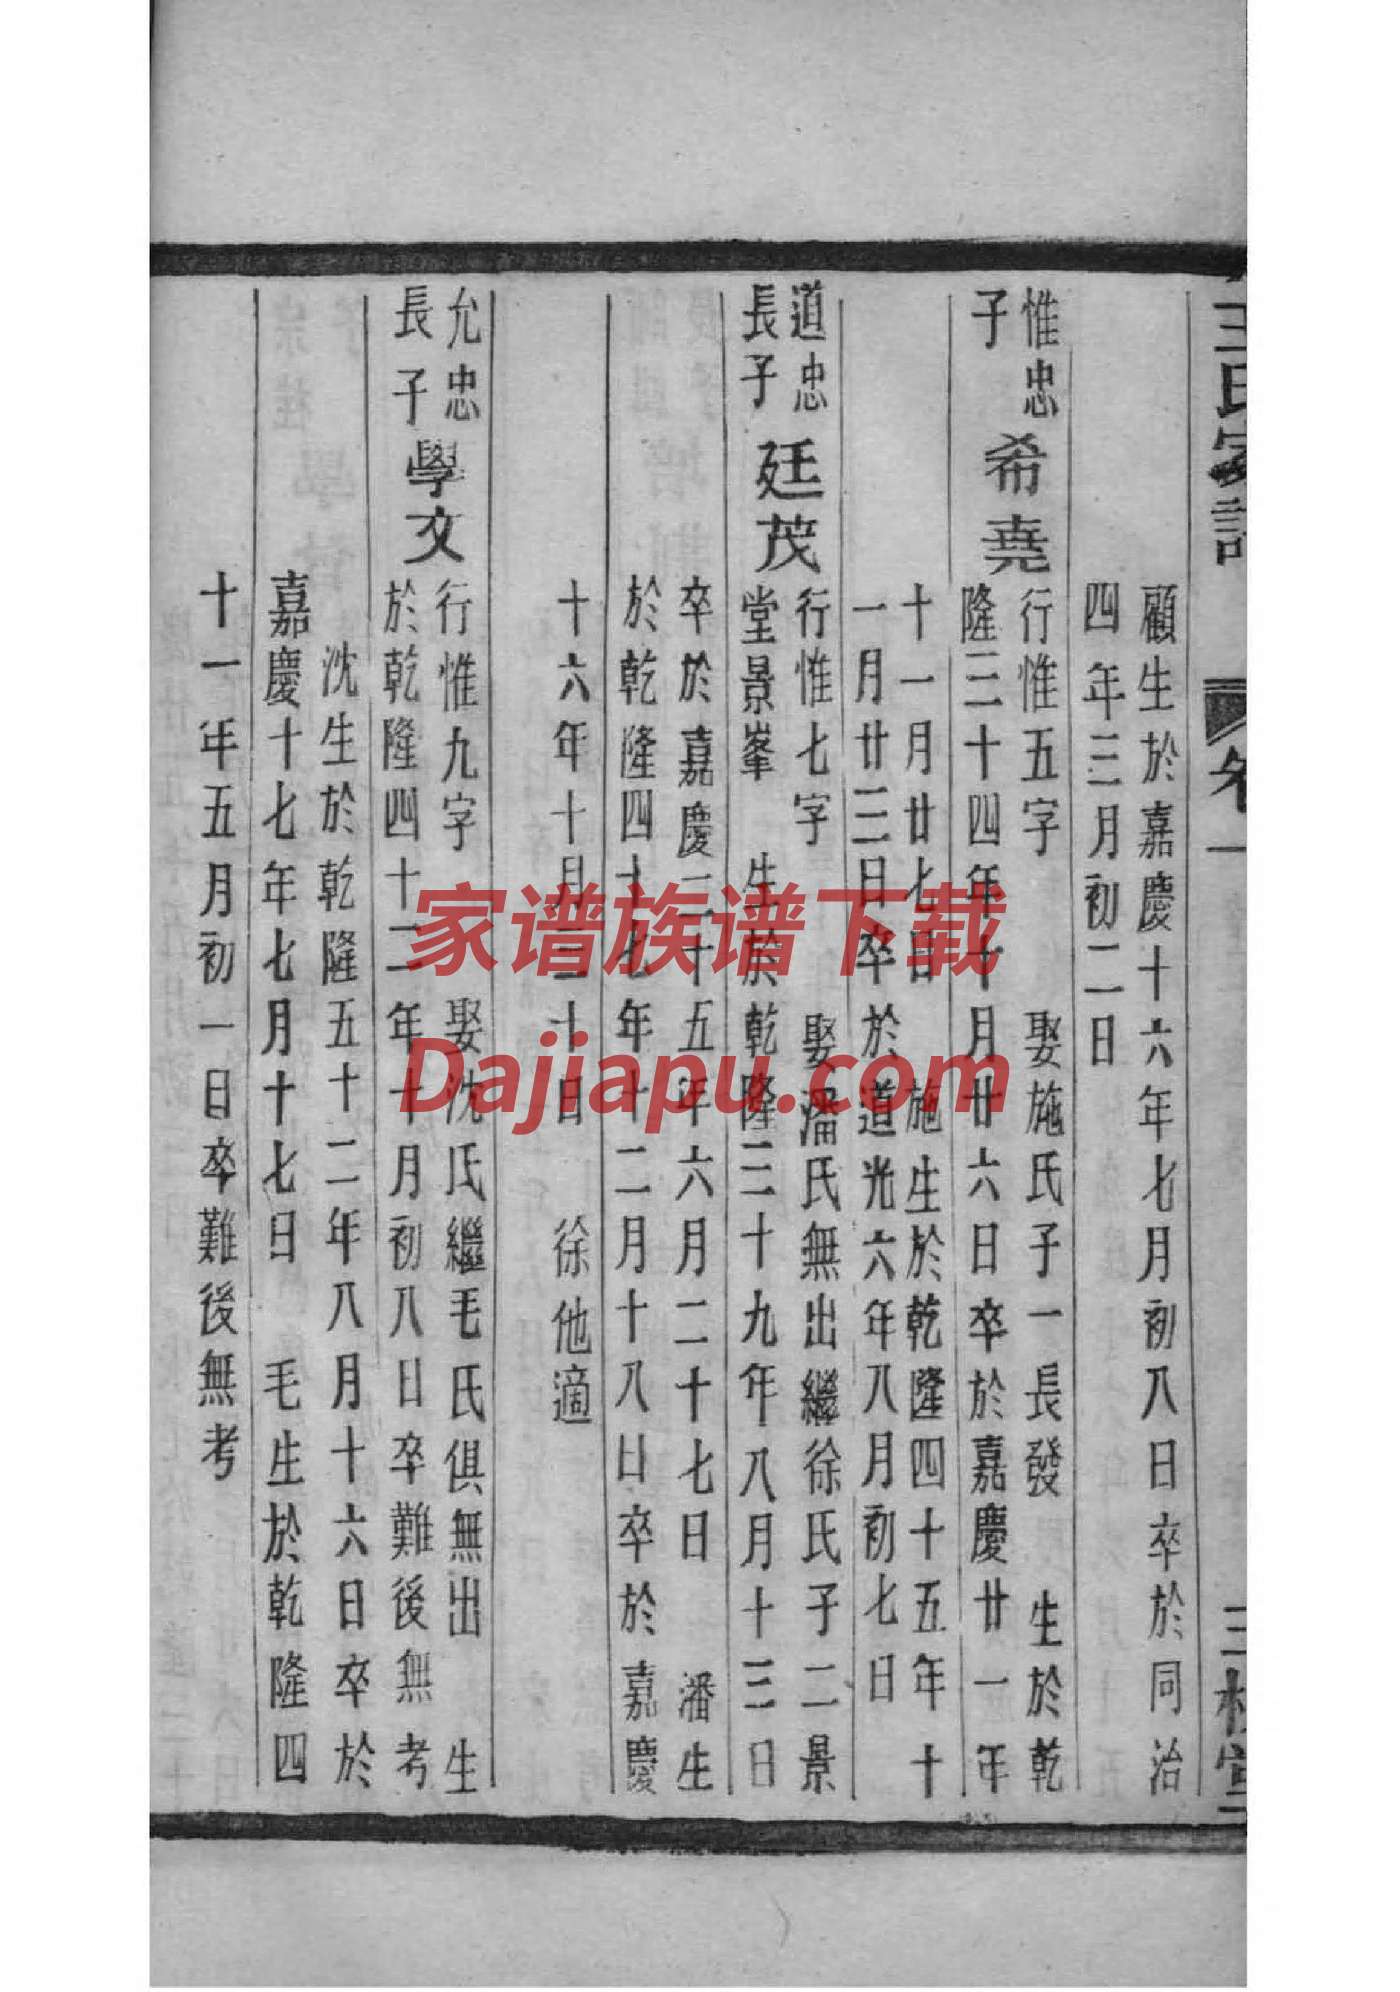 王氏家譜 卷一 三槐堂
顧生於嘉慶十六年七月初八日卒於同治
四年三月初二日
惟忠
子
希堯
行惟五字 娶施氏子一長發 生於乾
隆三十四年十月廿六日卒於嘉慶廿一年
十一月廿七日 施生於乾隆四十五年十
一月廿三日卒於道光六年八月初七日
道忠
長子
廷茂
行惟七字 娶潘氏無出繼徐氏子二景
堂景峯 生於乾隆三十九年八月十三日
卒於嘉慶二十五年六月二十七日 潘生
於乾隆四十七年十二月十八日卒於嘉慶
十六年十月三十日 徐他適
允忠
長子
學文
行惟九字 娶沈氏繼毛氏俱無出 生
於乾隆四十二年十月初八日卒難後無考
沈生於乾隆五十二年八月十六日卒於
嘉慶十七年七月十七日 毛生於乾隆四
十一年五月初一日卒難後無考
家谱族谱下载
Dajiapu.com